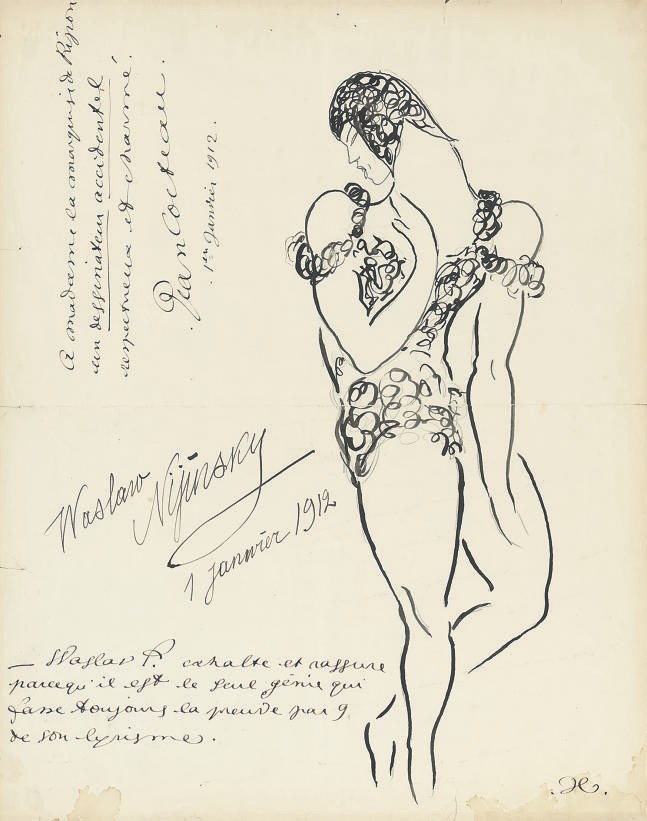 A madame la marquise de Ripon
un dessinateur accidentel
respectueux et charmé.
Jean Cocteau.
1er Janvier 1912.
Waslaw Nijinsky
1 janwier 1912
— Waslav P. exhalte et rassure
parcequ'il est le seul génie qui
fasse toujours la preuve par 9
de son lyrisme.
JC.